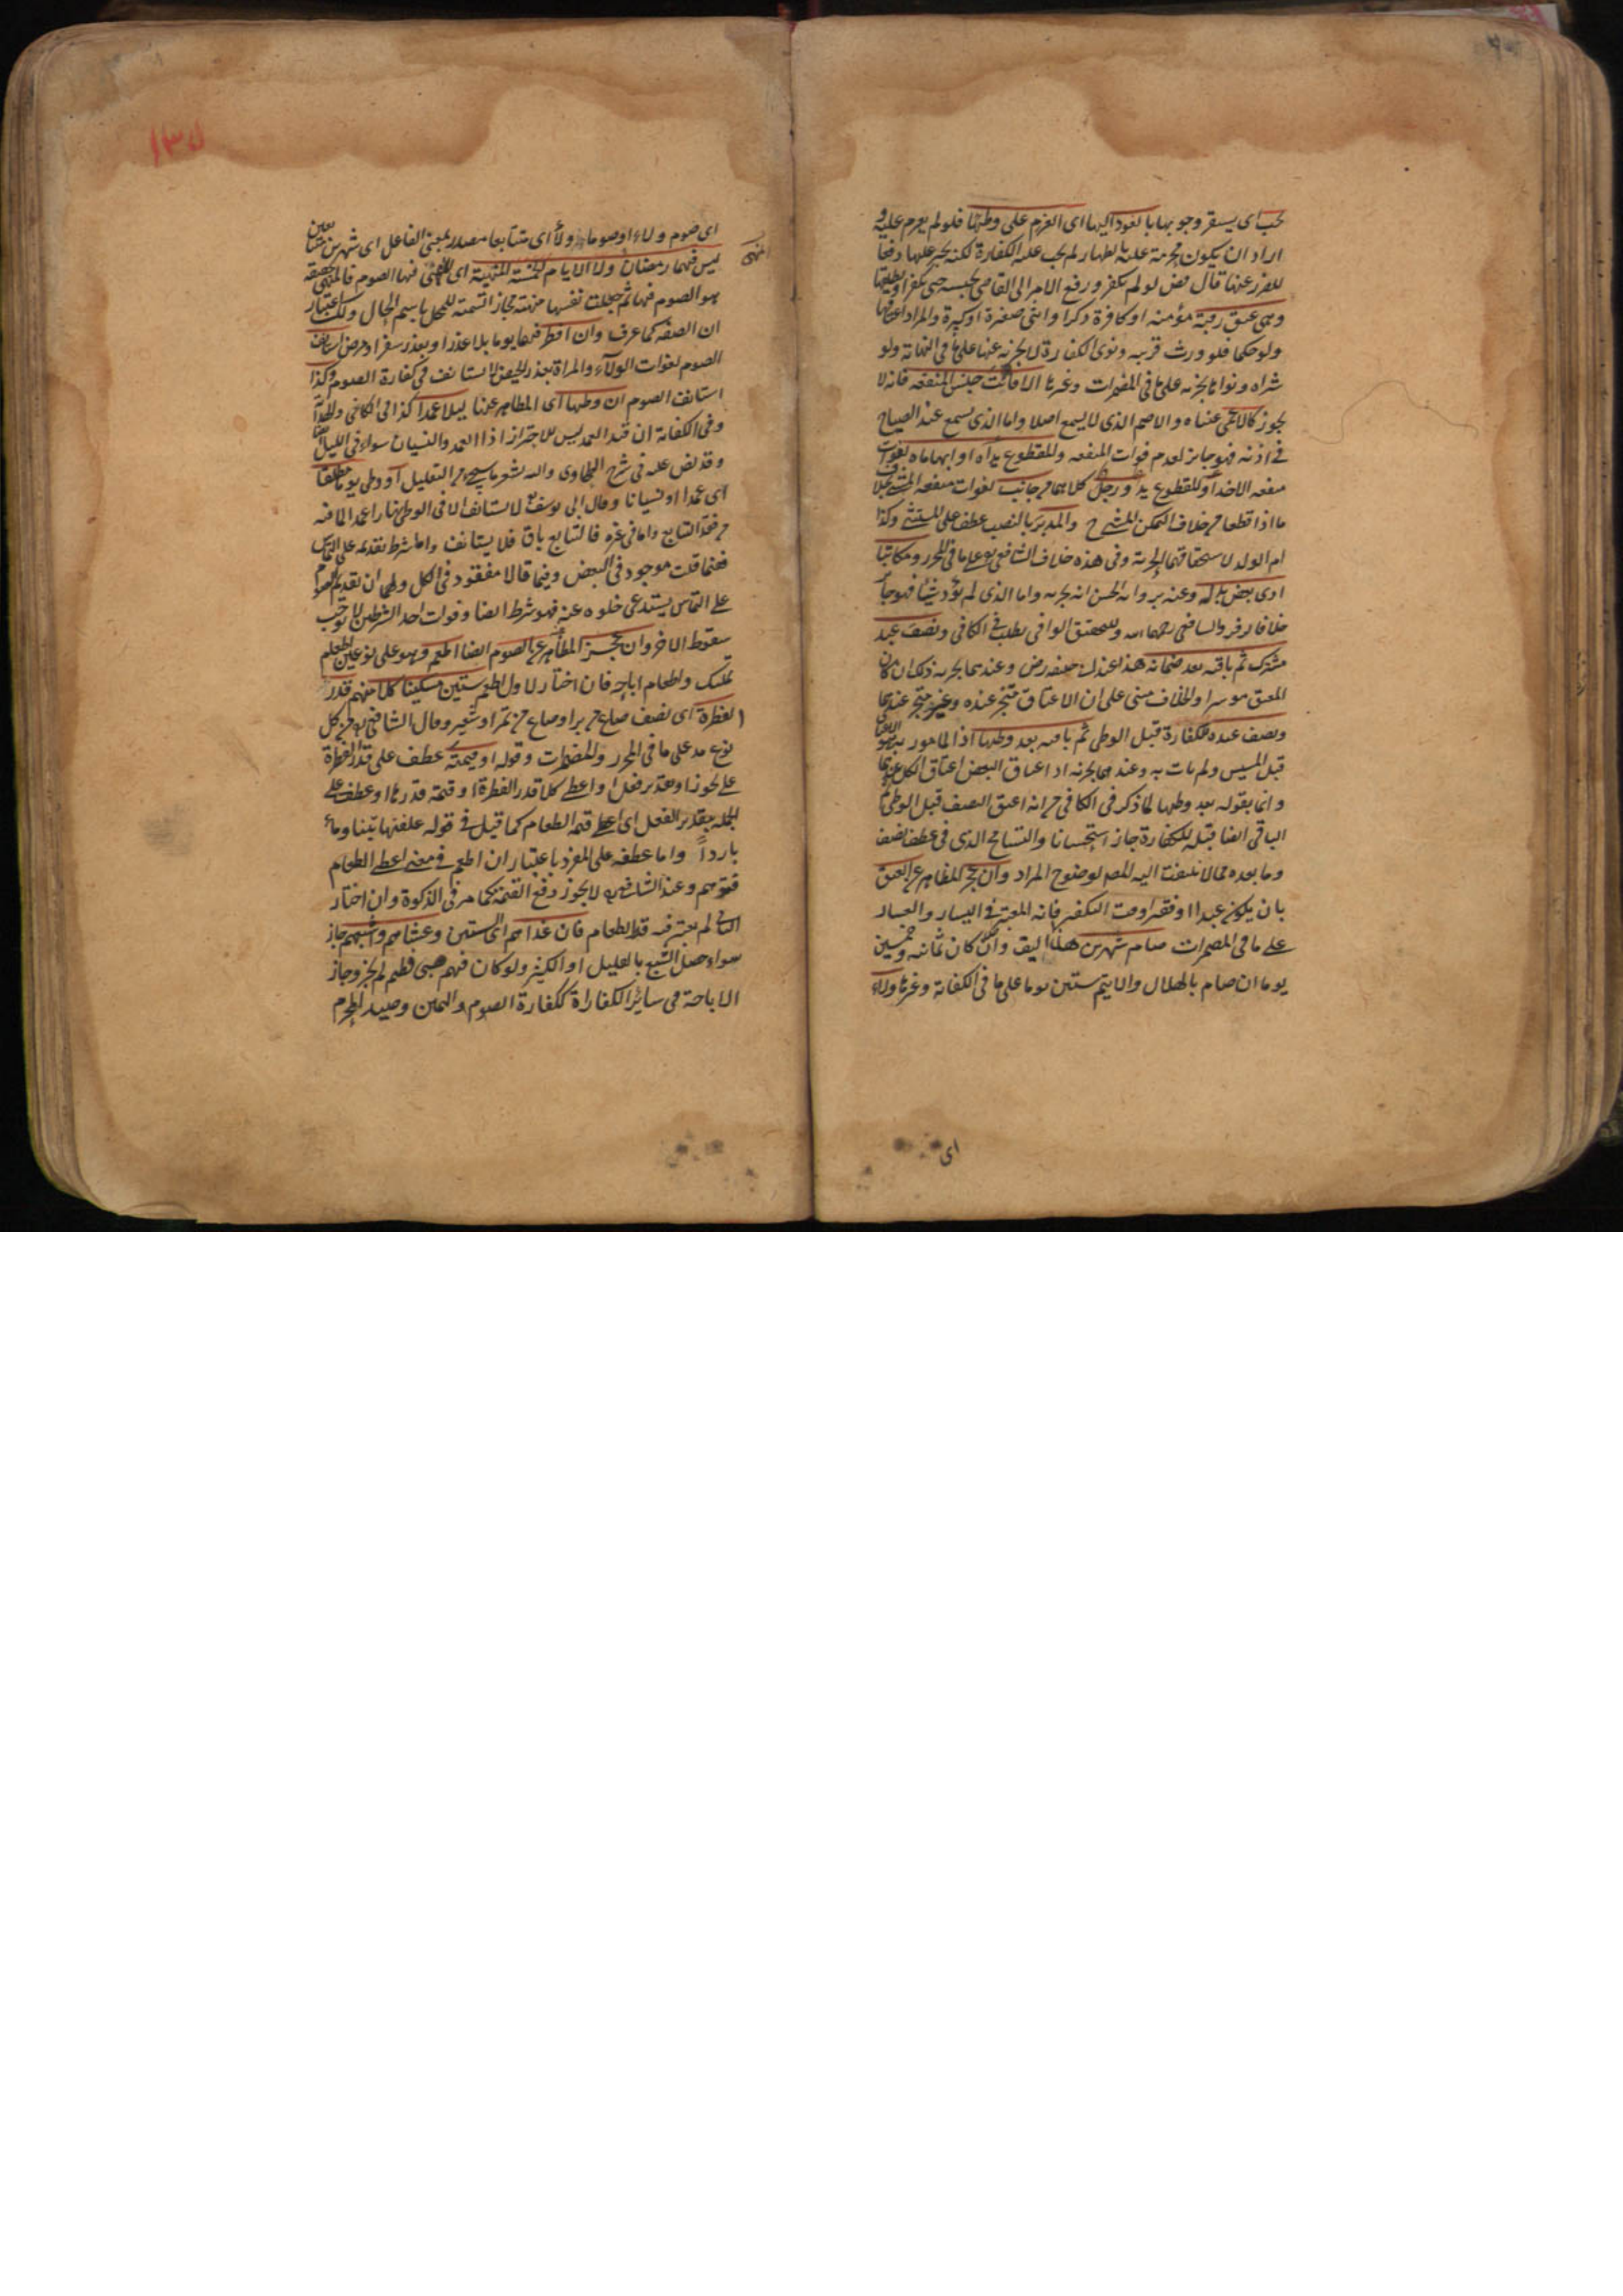 تجب اى يستقر وجوبها بالعود اليها اى العزم على وطيها فلو لم يعزم عليه و
اراد ان يكون محرمة عليه بالظهار لم يجب عليه الكفارة لكنه يجبر عليها دفعا
للضرر عنها قال رض لو لم يكفر ورفع الامر الى القاضى يحبسه حتى يكفر او يطلقها
وهى عتق رقبة مؤمنه او كافرة ذكرا وانثى صغيرة او كبيرة والمراد اعتاقها
ولو حكما فلو ورث قريبه ونوى الكفارة لا يجزيه عنها على ما فى النهاية ولو
شراه ونواها يجزيه على ما فى المضمرات وغيرها الا فائت جنس المنفعه فانه لا
يجوز كالاعمى عيناه والاصم الذى لا يسمع اصلا واما الذى يسمع عند الصياح
فى اذنه فهو جايز لعدم فوات المنفعه والمقطوع يداه او ابهاماه لفوت
منفعه الاخذ او المقطوع يد ورجل كلاهما من جانب لفوات منفعه المشى بخلاف
ما اذا قطعا من خلاف لتمكن المشى ح والمدبر بالنصب عطف على المستثنى وكذا
ام الولد لاستحقاقهما الحرية وفى هذه خلاف الشافعى رح على ما فى المحرر ومكاتبا
ادى بعض بدله وعنه برواية الحسن انه يجزيه واما الذى لم يؤد شيئا فهو جائز
خلافا لزفر والشافعى رحمهما الله وللتحقيق الوافى يطلب فى الكافى ونصف عبد
مشترك ثم باقيه بعد ضمانه هذا عند ابى حنيفه رض وعندهما يجزيه ذلك ان كان
المعتق موسرا والخلاف مبنى على ان الاعتاق متجز عنده وغير متجز عندهما
ونصف عبده للكفارة قبل الوطى ثم باقيه بعد وطيها اذ المأمور به هو الاعتاق
قبل المسيس ولم يات به وعندهما يجزيه اذ اعتاق البعض اعتاق الكل عندهما
وانما بقوله بعد وطيها لما ذكر فى الكافى من انه اعتق النصف قبل الوطى ثم
الباقى ايضا قبله للكفارة جاز استحسانا والتسامح الذى فى عطف نصف
وما بعده مما لا يلتفت اليه المص لوضوح المراد وان عجز المظاهر عن العتق
بان يكون عبدا او فقيرا وقت التكفير فانه المعتبر فى اليسار والعسار
على ما فى المضمرات صام شهرين هلالا اليق وان كان ثمانيه وخمسين
يوما ان صام بالهلال والا يتم ستين يوما على ما فى الكفاية وغيرها ولاء
اى
١٣٧
اى صوم ولاء او صوما ولاء اى متتابعا مصدر بمعنى الفاعل اى شهرين متتابعين
ليس فيهما رمضان ولا الايام الخمسة المنهية اى المنهى فيها الصوم فالمنهى حقيقه
هو الصوم فيها ثم جعلت نفسها منهية مجازا تسمية للمحل باسم الحال ولك اعتبار
ان الصفه كما عرف وان افطر فيهما يوما بلا عذر او بعذر سفر او مرض استانف
الصوم لفوات الولاء والمراة بعذر الحيض لا تستانف فى كفارة الصوم وكذا
استانف الصوم ان وطيها اى المظاهر عنها ليلا عمدا كذا فى الكافى والهداية
وفى الكفاية ان قيد العمد ليس للاحتراز اذا العمد والنسيان سواء فى الليل ايضا
وقد نص عليه فى شرح الطحاوى واليه يشير ما سيجئ من التعليل او وطى يوما مطلقا
اى عمدا او نسيانا وقال ابى يوسف لا يستانف الا فى الوطى نهارا عمدا لما فيه
من فقد التتابع واما فى غيره فالتتابع باق فلا يستانف واما شرط تقديمه على التماس
ففيما قلت موجود فى البعض وفيما قالا مفقود فى الكل ولهما ان تقديم الصوم
على التماس يستدعى خلوه عنه فهو شرط ايضا وفوات احد الشرطين لا يوجب
سقوط الاخر وان عجز المظاهر عن الصوم ايضا اطعم وهو على نوعين اطعام
تمليك واطعام اباحه فان اختار الاول اطعم ستين مسكينا كلا منهم قدر
الفطرة اى نصف صاع من بر او صاع من تمر او شعير وقال الشافعى رح من كل
نوع مد على ما فى المحرر والمضمرات وقوله او قيمته عطف على قدر الفطرة
على تجوز او تقدير فعل اى واعطى كلا قدر الفطرة او قيمة قدرها او عطف على
الجملة بتقدير الفعل اى اعطى قيمة الطعام كما قيل فى قوله علفتها تبنا وماء
باردا واما عطفه على المفرد باعتبار ان اطعم فى معنى اعطى الطعام
فتوهم وعند الشافعى رح لا يجوز دفع القيمة كما مر فى الزكوة وان اختار
الثانى لم يعتبر فيه قدر الطعام فان غداهم اى الستين وعشاهم واشبعهم جاز
سواء حصل الشبع بالقليل او الكثير ولو كان فيهم صبى فطيم لم يجز وجاز
الاباحة فى ساير الكفاراة ككفارة الصوم واليمين وصيد المحرم